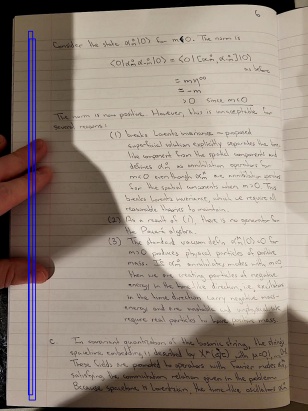 6
Consider the state α⁰ₘ|0⟩ for m<0. The norm is
⟨0|α⁰₋ₘα⁰ₘ|0⟩ = ⟨0|[α⁰₋ₘ, α⁰ₘ]|0⟩
as before
= mη⁰⁰
= -m
>0 since m<0
The norm is now positive. However, this is unacceptable for
several reasons:
(1) breaks Lorentz invariance - proposed
superficial solution explicitly separates the time
like component from the spatial component and
defines as annihilation operators for
m<0 even though are annihilation operators
for the spatial components when m>0. This
breaks Lorentz invariance, which we require all
reasonable theories to maintain.
(2) As a result of (1), there is no generator for
the Poincaré algebra.
(3) The standard vacuum defn for
m>0 produces physical particles of positive
mass. If annihilates with m<0
then we are creating particles of negative
energy in the time-like direction, i.e. excitations
in the time direction carry negative mass-
energy and are unstable and
require real particles to have positive mass.
C. In covariant quantization of the bosonic string, the string
spacetime embedding is described by with
These fields are promoted to operators with Fourier modes
satisfying the commutation relation given in the problem.
Because spacetime is Lorentzian, the time-like oscillators